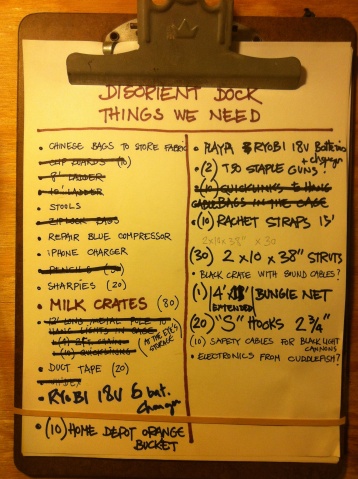 DISORIENT DOCK
THINGS WE NEED
• CHINESE BAGS TO STORE FABRIC
• CLIP BOARDS (10)
• 8' LADDER
• 10' LADDER
• STOOLS
• ZIPLOCK BAGS
• REPAIR BLUE COMPRESSOR
• iPHONE CHARGER
• PENCILS
• SHARPIES (20)
• MILK CRATES (80)
• METAL POLE TO
HANG LIGHTS
(10) QUICKLINKS
STORAGE
• DUCT TAPE (20)
• RYOBI 18V 6 bat.
• (10) HOME DEPOT ORANGE
BUCKET
• PLAYA RYOBI 18V Batteries
+ charger
• (2) T50 STAPLE GUNS?
• (10) QUICKLINKS TO HANG
CABLE BAGS IN THE CAGE
• (10) RACHET STRAPS 15'
2x10x38" x 30
(30) 2 x 10 x 38" STRUTS
• BLACK CRATE WITH SOUND CABLES?
(1) 4' BUNGIE NET
EXTENDED
(20) "S" HOOKS 2 3/4"
(10) SAFETY CABLES FOR BLACK LIGHT
CANNONS
• ELECTRONICS FROM CUDDLEFISH?